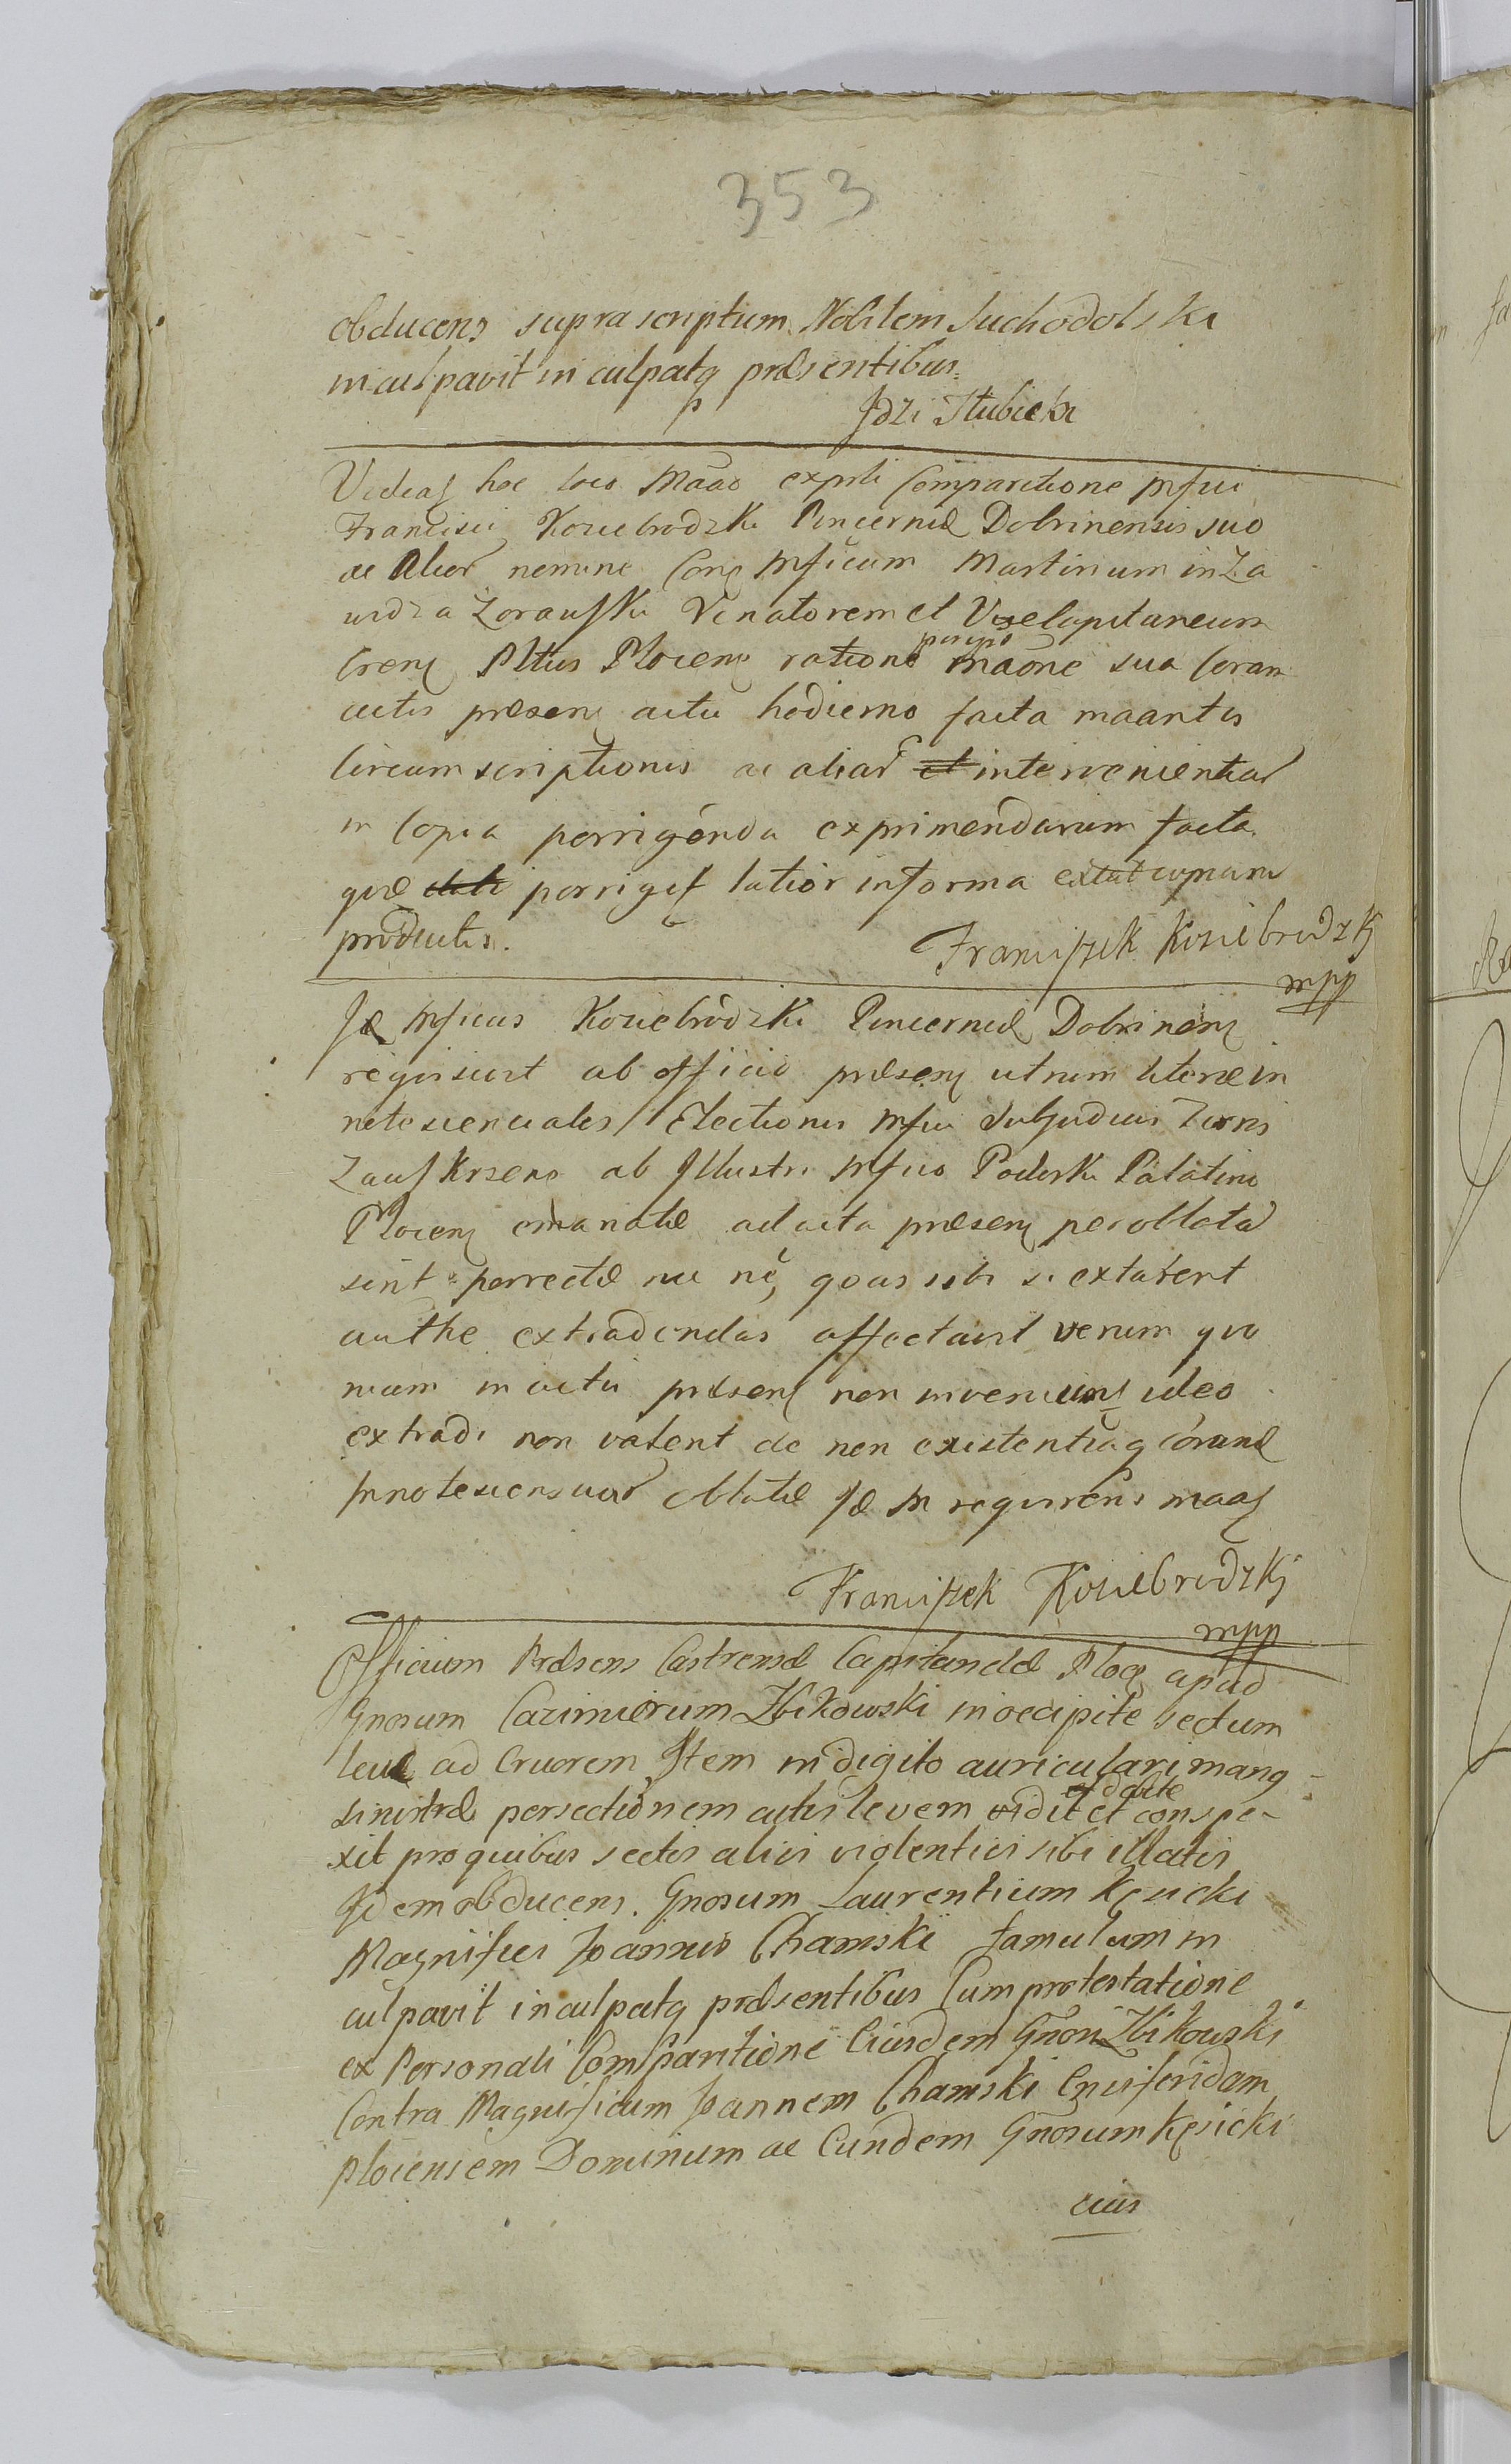 353
obducens supra scriptum Nobilem Suchodolski
inculpavit inculpatq præsentibus.
Idzi Słubicki
Videaʃ hoc loco Maão exprli Comparitione Mfici
Francisci Koziebrodzki Pincernæ Dobrinensis suo
ac Alior nomine Conʒ Mficum Martinum in Za
widza Zorawski Venatorem et Vicecapitaneum
Crenʒ Pltus Plocenʒ ratione maõne sua Coram
actis præsenʒ actu hodierno facta maantis
Circumscriptionis ac aliar intervenientiar
in Copia porrigenda exprimendarum facta
quæ porrigeʃ latior in forma
productis.
Franciszek Koziebrodzkj
mpp
Id Mficus Koziebrodzki Pincerna Dobrinenʒ
requisivit ab officio præsenʒ utrum literæ in
notescenciales Electionis Mfici Subjudicis Terris
Zawskrzens ab Illustri Mfico Podoski Palatino
Plocenʒ emanatæ ad acta præsenʒ per oblatã
sint porrectæ nec nè, quas sibi si extarent
authe extradendas affectavit verum quo
niam in actis præsenʒ non inveniunʒ ideo
extradi non valent de non existentiaq córund
Innotescensuar Oblatæ Id M requirens maaʃ
Franciszek Koziebrodzkj
mpp
Officium Præsens Castrense Capitaneale Ploc apud
Gnosum Cazimirum Zbikowski in occipite sectum
leve ad Cruorem Item in digito auriculari manq
sinistræ persectionem cutis levem vidit et conspe-
xit pro quibus sectis aliis violentiis sibi illatis
Idem obducens. Gnosum Laurentium Kęsicki
Magnifici Joannis Chamski famulum in
culpavit inculpatq præsentibus Cum protestatione
ex Personali Comparitione Eiusdem Gnosi Zbikowski
Contra Magnificum Joannem Chamski Ensiferidem
Plocensem Dominum ac Eundem Gnosum Kęsicki
eius